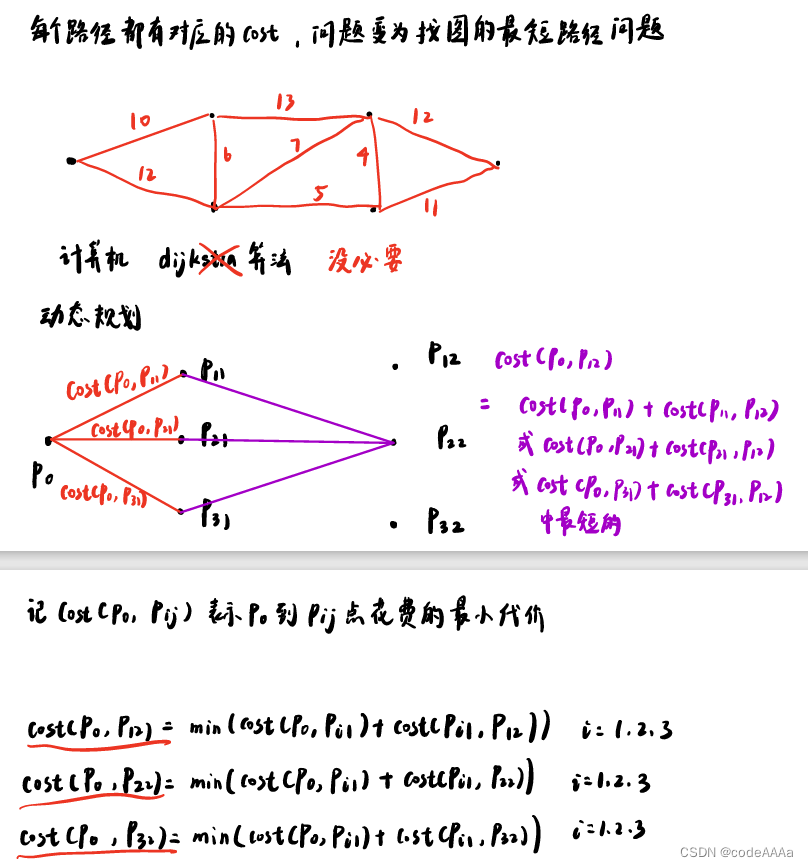 每个路径都有对应的cost，问题变为找图的最短路径问题
10
13
12
12
6
7
4
5
11
计算机 dijkstra算法 没必要
动态规划
cost(P0,P11)
P11
cost(P0,P21)
P21
P0
cost(P0,P31)
P31
P12
P22
P32
cost(P0,P12)
= cost(P0,P11) + cost(P11,P12)
或 cost(P0,P21) + cost(P21,P12)
或 cost(P0,P31) + cost(P31,P12)
中最短的
记 cost(P0, Pij) 表示 P0 到 Pij 点花费的最小代价
cost(P0,P12) = min(cost(P0,Pi1) + cost(Pi1,P12)) i=1.2.3
cost(P0,P22) = min(cost(P0,Pi1) + cost(Pi1,P22)) i=1.2.3
cost(P0,P32) = min(cost(P0,Pi1) + cost(Pi1,P32)) i=1.2.3
CSDN @codeAAAa